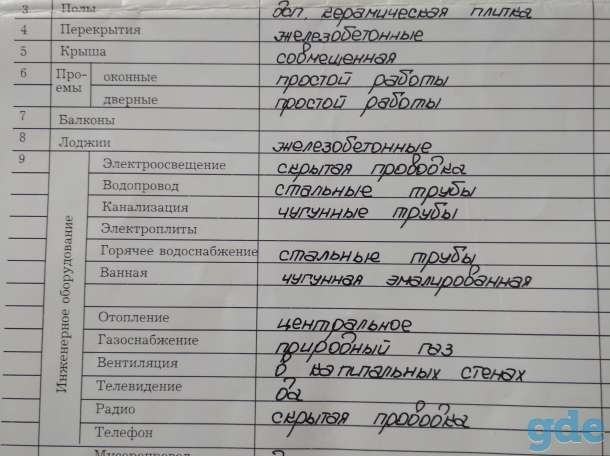 3 Полы дсп, керамическая плитка
4 Перекрытия железобетонные
5 Крыша совмещенная
6 Про-емы оконные простой работы
дверные простой работы
7 Балконы
8 Лоджии железобетонные
9 Инженерное оборудование
Электроосвещение скрытая проводка
Водопровод стальные трубы
Канализация чугунные трубы
Электроплиты
Горячее водоснабжение стальные трубы
Ванная чугунная эмалированная
Отопление центральное
Газоснабжение природный газ
Вентиляция в капитальных стенах
Телевидение да
Радио скрытая проводка
Телефон
Мусоропровод
gde